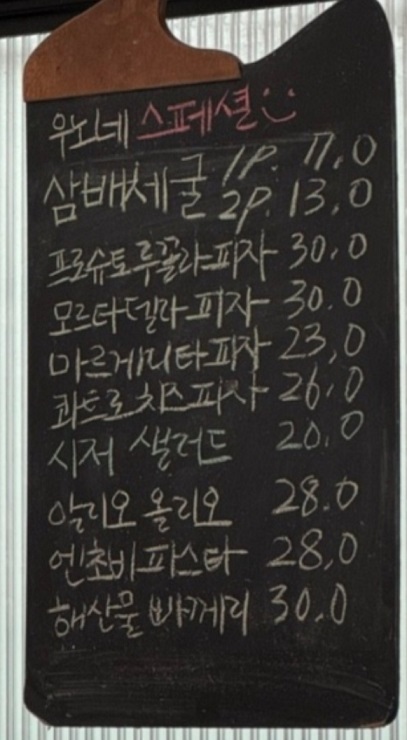 우노네 스페셜
삼배체굴 1P. 7,0
2P. 13,0
프로슈토루꼴라피자 30,0
모르타델라피자 30.0
마르게리타피자 23,0
콰트로치즈피자 26,0
시저 샐러드 20.0
알리오 올리오 28.0
엔초비파스타 28,0
해산물 빠께리 30.0